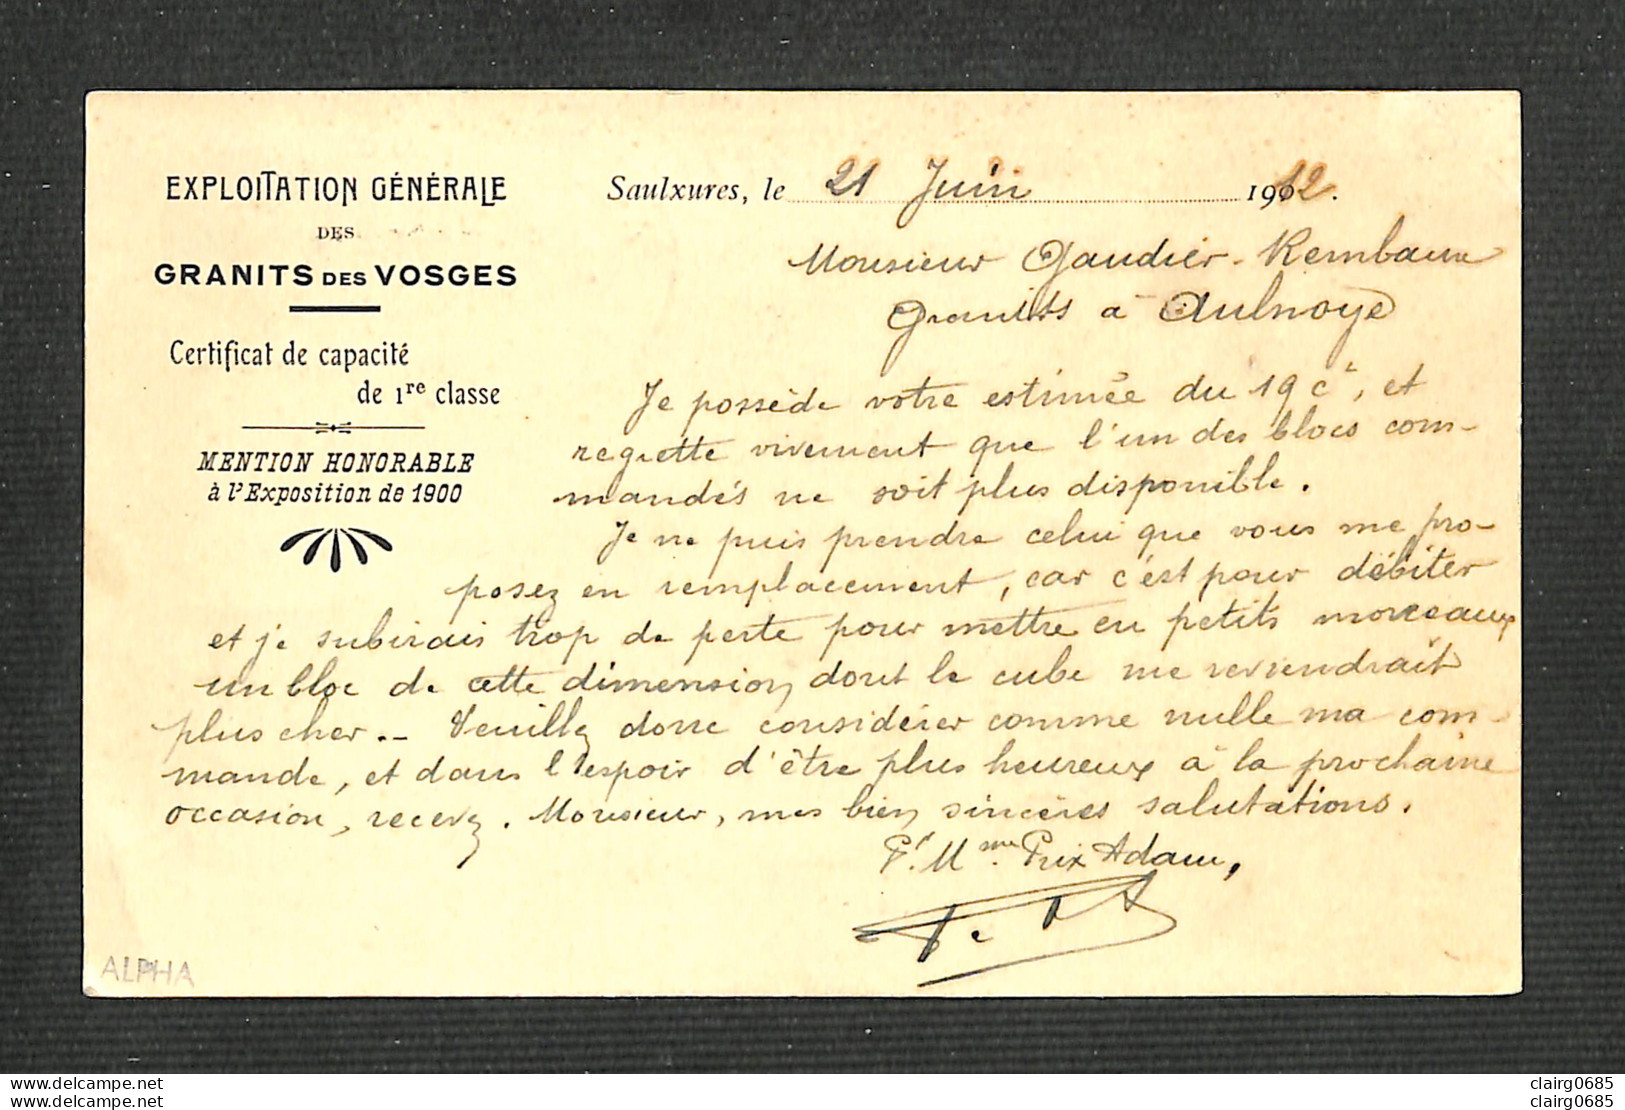 EXPLOITATION GÉNÉRALE
DES
GRANITS DES VOSGES
Certificat de capacité
de 1re classe
MENTION HONORABLE
à l'Exposition de 1900
Saulxures, le 21 Juin 1912.
Monsieur Gaudier-Rembaux
Granits à Aulnoye
Je possède votre estimée du 19 ct, et
regrette vivement que l'un des blocs com-
mandés ne soit plus disponible.
Je ne puis prendre celui que vous me pro-
posez en remplacement, car c'est pour débiter
et je subirais trop de perte pour mettre en petits morceaux
un bloc de cette dimension dont le cube me reviendrait
plus cher.- Veuillez donc considérer comme nulle ma com-
mande, et dans l'espoir d'être plus heureux à la prochaine
occasion, recevez, Monsieur, mes bien sincères salutations.
Pr. Mme. Prix Adam,
ALPHA
delcampe.net
clairg0685
delcampe.net
clairg0685